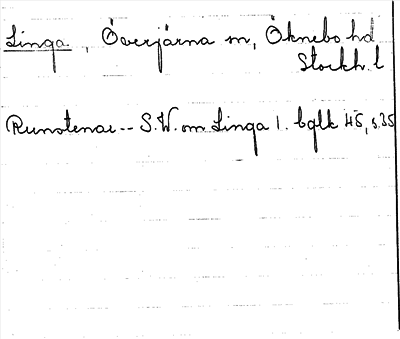 Linga, Överjärna sn, Öknebo hd
Stockh. l
Runstenar -- S.W. om Linga l. bglk 45, s. 35